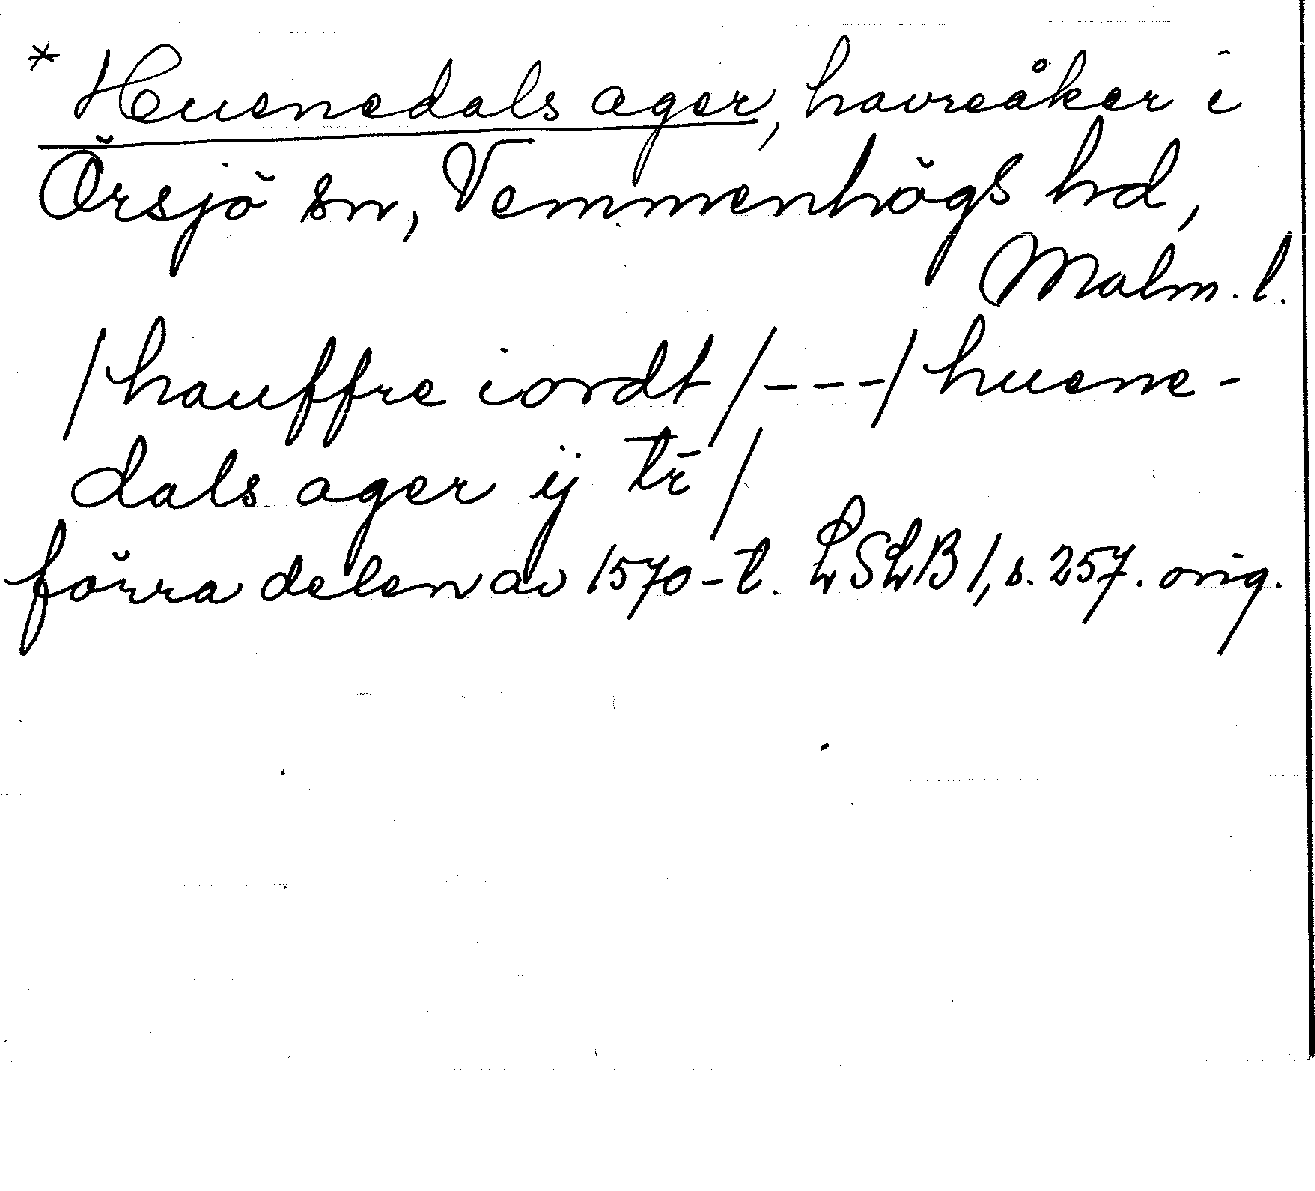 * Huenedals ager, havreåker i
Örsjö sn, Vemmenhögs hd,
Malm. l.
/hauffre iordt/---/huene-
dals ager ij tr̄/
förra delen av 1570-t. LSLB 1, s. 257. orig.